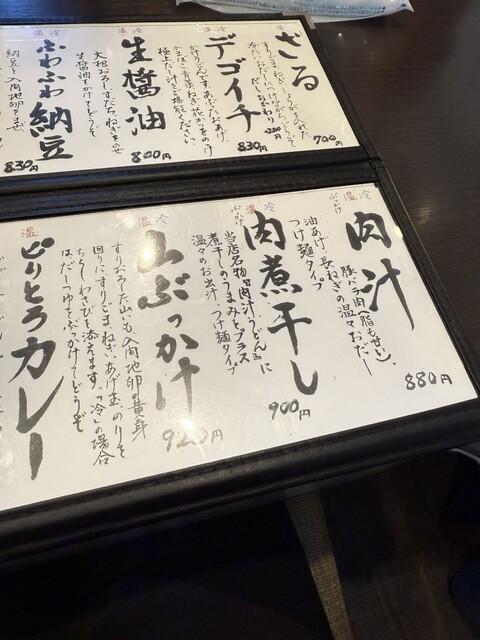 冷
ざる
700円
温 冷
デゴイチ
830円
温 冷
生醤油
大根おろし、すだち、ねぎをのせ
生醤油をかけてどうぞ
800円
温 冷
ふわふわ納豆
830円
温 冷
ぶっかけ
肉汁
豚バラ肉(脂も甘い)、
油あげ、長ねぎの温々おだし
つけ麺タイプ
880円
温 冷
ぶっかけ
肉煮干し
当店名物『肉汁うどん』に
煮干しのうまみをプラス
温々のお出汁、つけ麺タイプ
900円
温 冷
山ぶっかけ
すりおろした山いも、入間地卵の黄身
回りに、すりごま、ねぎ、あげ玉、のりを
ちらし、わさびを添えます。「冷」の場合
はだしつゆをぶっかけてどうぞ
920円
温
とりとろカレー